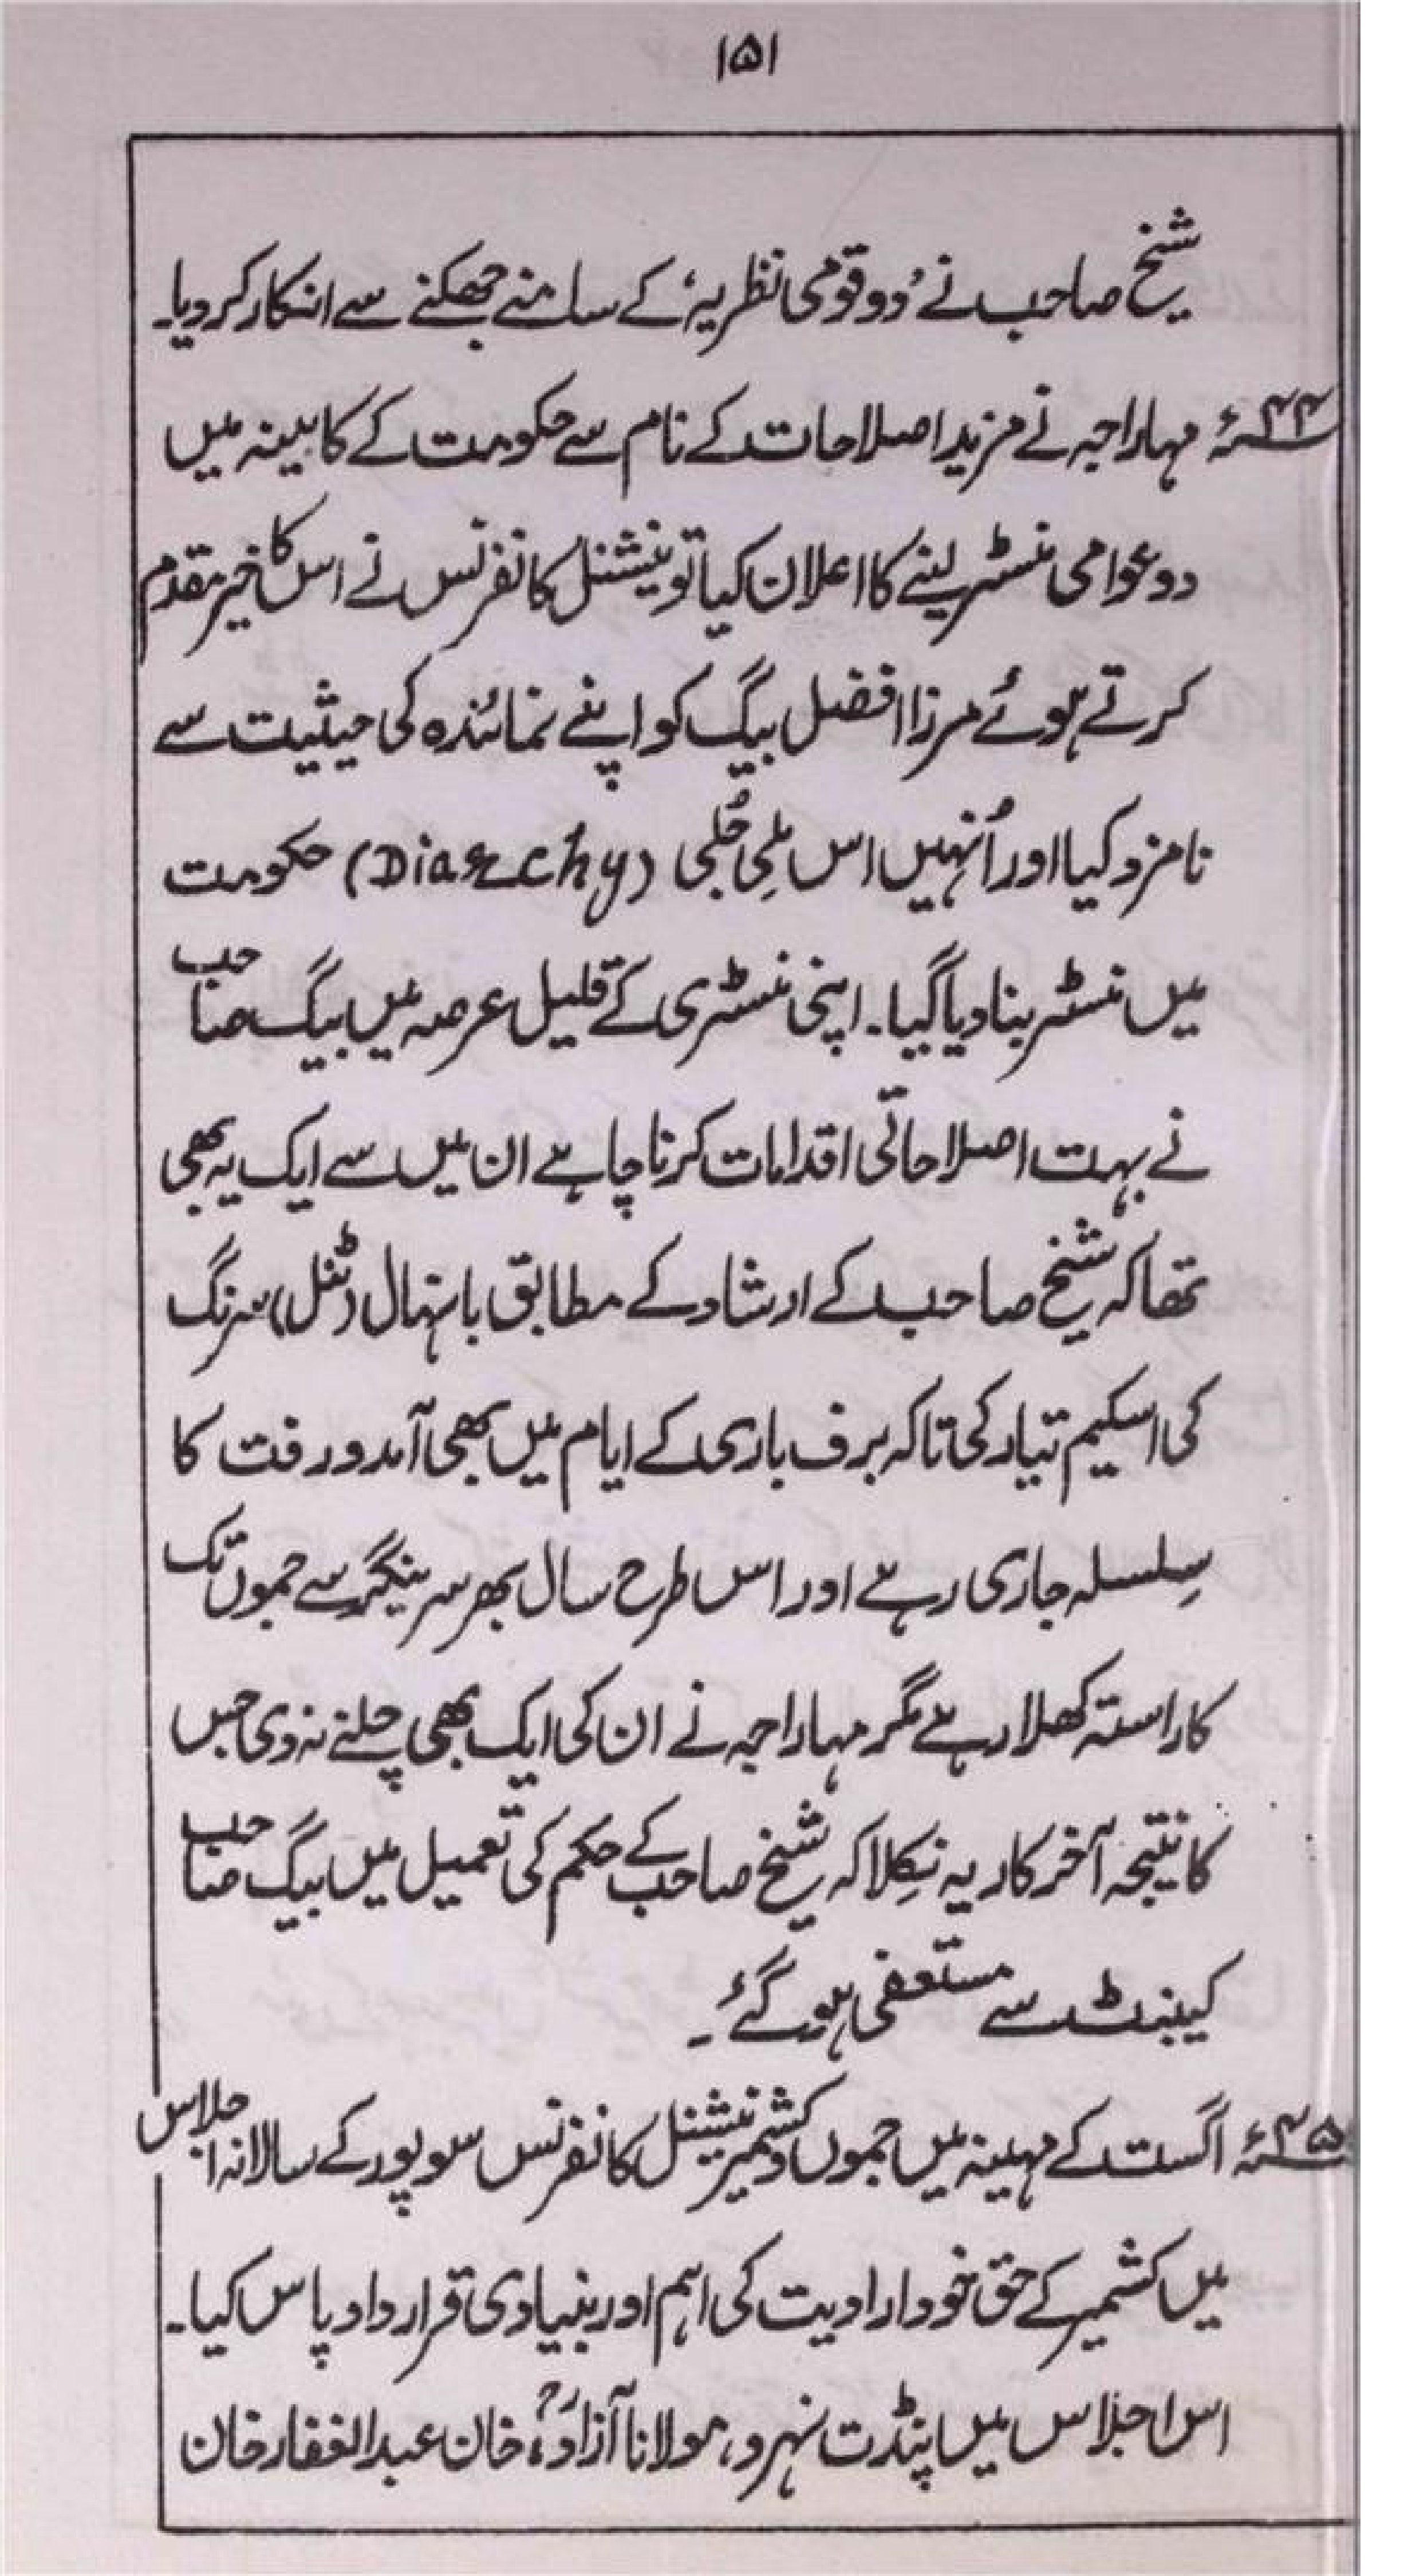 ۱۵۱
شیخ صاحب نے ’دو قومی نظریہ‘ کے سامنے جھکنے سے انکار کر دیا۔
۴۴ء مہاراجہ نے مزید اصلاحات کے نام سے حکومت کے کابینہ میں
دو عوامی منسٹر لینے کا اعلان کیا تو نیشنل کانفرنس نے اس کا خیر مقدم
کرتے ہوئے مرزا افضل بیگ کو اپنے نمائندہ کی حیثیت سے
نامزد کیا اور اُنہیں اس مِلی جُلی (Diarchy) حکومت
میں منسٹر بنا دیا گیا۔ اپنی منسٹری کے قلیل عرصہ میں بیگ صاحب
نے بہت اصلاحاتی اقدامات کرنا چاہے ان میں سے ایک یہ بھی
تھا کہ شیخ صاحب کے ارشاد کے مطابق بانہال (ٹنل) سرنگ
کی اسکیم تیار کی تاکہ برف باری کے ایام میں بھی آمد و رفت کا
سِلسلہ جاری رہے اور اس طرح سال بھر سرینگر سے جموں تک
کا راستہ کھلا رہے مگر مہاراجہ نے ان کی ایک بھی چلنے نہ دی جس
کا نتیجہ آخر کار یہ نِکلا کہ شیخ صاحب کے حکم کی تعمیل میں بیگ صاحب
کیبنٹ سے مستعفی ہو گئے۔
۴۵ء اگست کے مہینہ میں جموں و کشمیر نیشنل کانفرنس سوپور کے سالانہ اجلاس
میں کشمیر کے حق خود ارادیت کی اہم اور بنیادی قرارداد پاس کیا۔
اس اجلاس میں پنڈت نہرو، مولانا آزادؒ، خان عبدالغفار خان